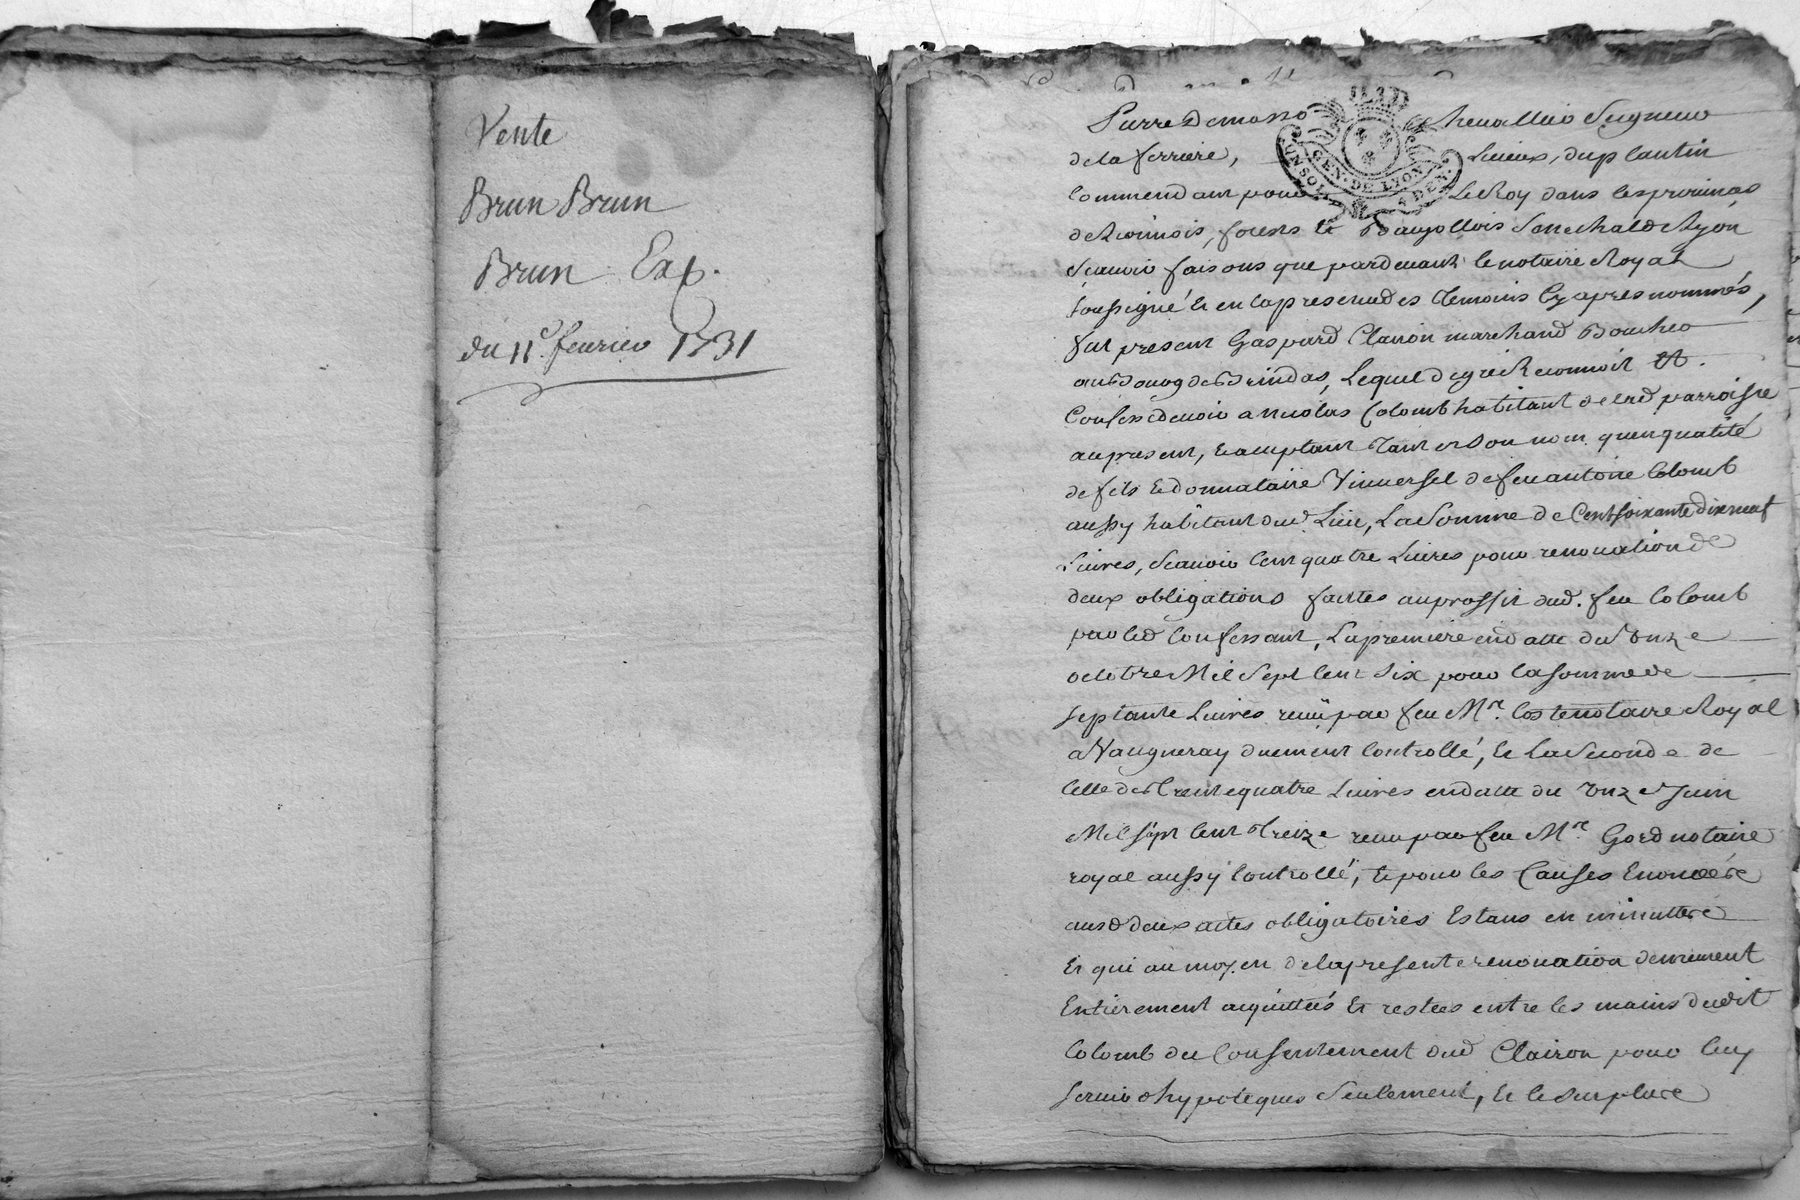 Vente
Brun Brun
Brun Exp.
du 11e. feurier 1731
Pierre Demasso Cheuallier Seigneur
de la ferriere, Lisieux, du plantin
Commendant pour Le Roy dans les prouinces
de Lionnois, forests et Baujollois Senechal de Lyon
Scauoir faisons que pardeuant le notaire Royal
soussigné et en la presence des Temoins Cy apres nommés,
fut present Gaspard Clairon marchand Boucher
au Bourg de Brindas, Lequel de gré Reconnoit et
Confesse deuoir a nicolas Colomb habitant de lad parroisse
au present, et acceptant Tant en son nom qu'en qualité
de fils et donnataire Vniuersel de feu antoine Colomb
aussy habitant dud. Lieu, La Somme de Cent soixante dix neuf
Liures, Scauoir Cent quatre Liures pour renouation de
deux obligations faittes au proffit dud. feu Colomb
par led Confessant, La premiere en datte du Onze
octobre Mil Sept Cent Six pour la somme de
septante Liures receü par feu Mre. Coste notaire Royal
a Vaugneray duement Controllé, et La Seconde de
Celle de Trente quatre Liures en datte du Onze Juin
Mil sept Cent Treize receu par feu Mre Gord notaire
royal aussy Controllé, et pour les Causes Enoncées
ausd deux actes obligatoires Estans en minutte
Et qui au moyen de la presente renouation demeurent
Entierement acquittées Et restées entre les mains dudit
Colomb du Consentement dud Clairon pour luy
seruir d'hypoteques Seulement, et le surplus
GEN. DE LYON